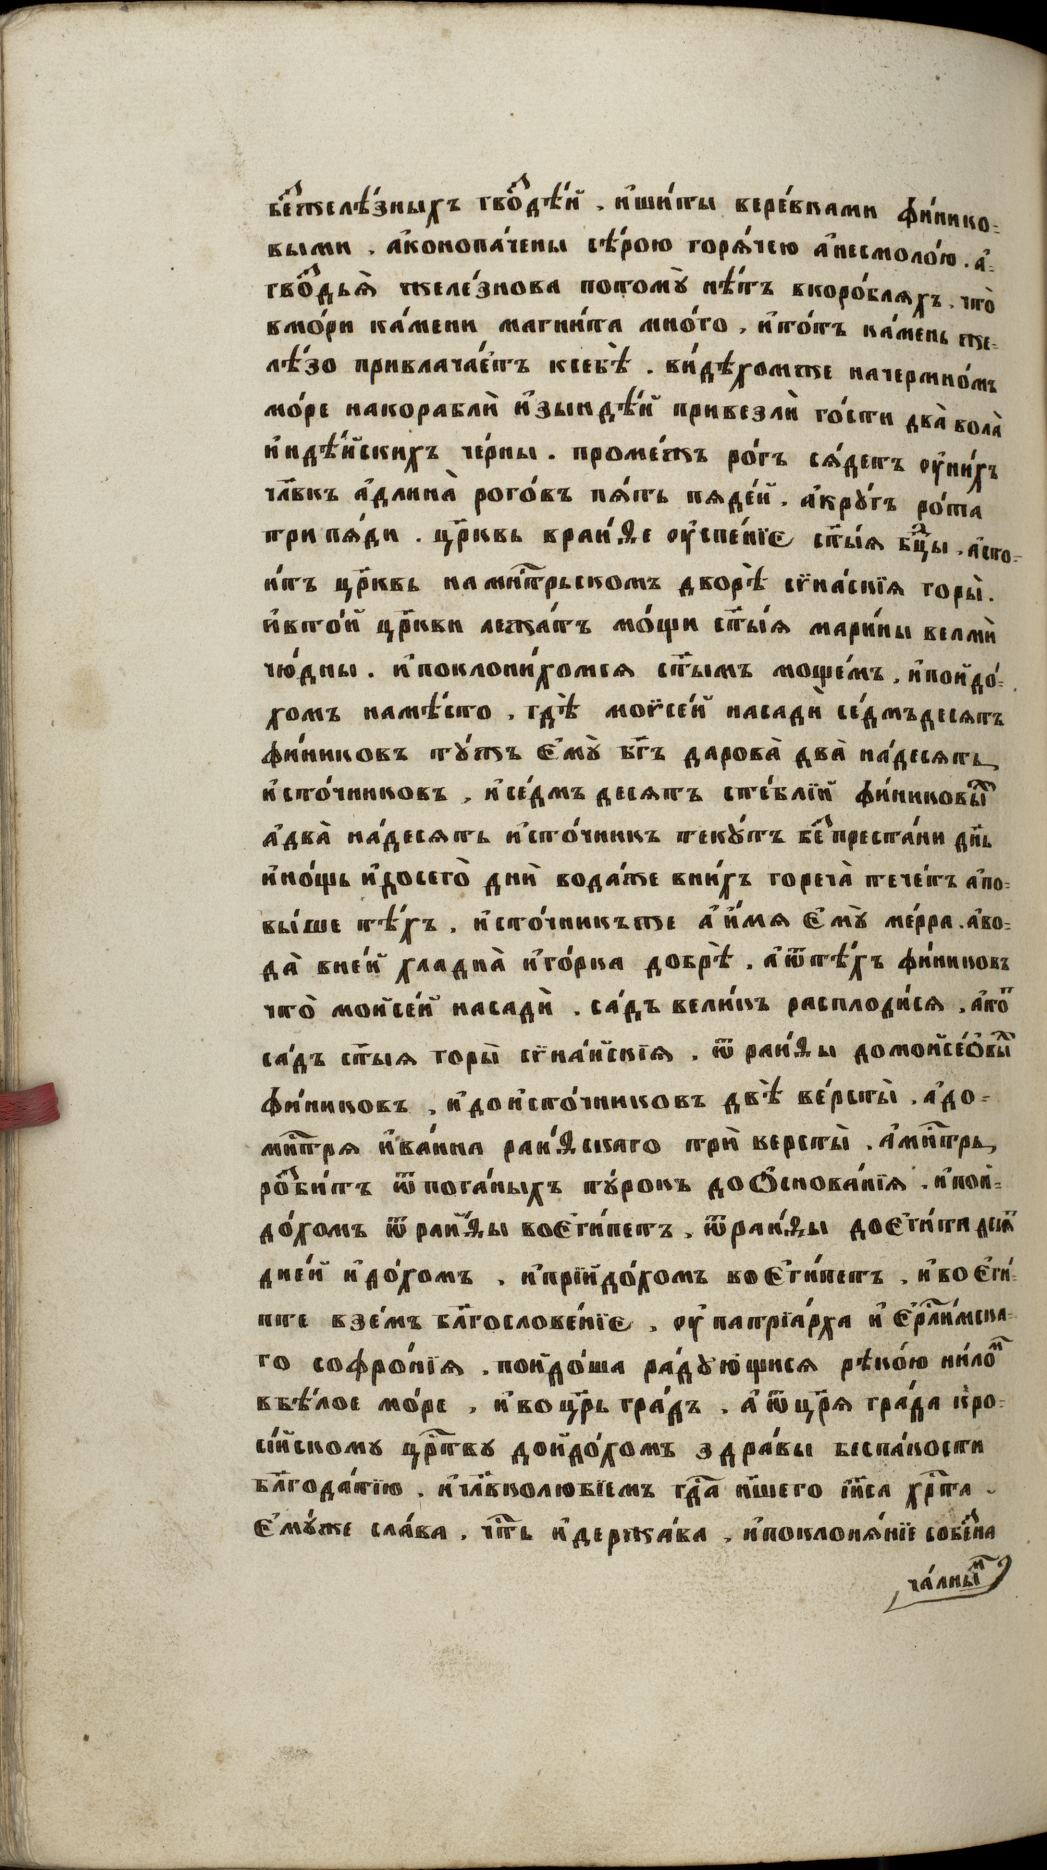 беⷥжелѣ́зныхъ гвоⷥдѣ́й . и҆ши́ты вере́вками фи́нико-
выми . а҆конопа́чены сѣ́рою горѧ́чею а҆несмоло́ю . а҆-
гвоⷥдьѧ̀ желе́знова потомꙋ̀ нѣ́тъ вкоро́блѧхъ . что̀
вмо́ри ка́мени магни́та мно́го , и҆то́тъ ка́мень же-
лѣ́зо привлачае́тъ ксебѣ̀ . ви́дѣхомже начермно́мъ
мо́ре накорабли̇̀ и҆зындѣ́й привезли̇̀ го́сти два̀ вола̀
и҆ндѣ́йскихъ че́рны . проме́жъ ро́гъ сѧ́детъ ᲂу҆ни́хъ
чл҃вкъ а҆длина̀ рого́въ пѧ́ть пѧде́й . а҆крꙋ́гъ ро́га
три пѧ́ди . цр҃ковь враи́ѳе ᲂу҆спе́нїе ст҃ы́ѧ бц҃ы . а҆сто-
и́тъ цр҃ковь намⷭ҇трьскомъ дворѣ̀ сѵна́скїѧ горы̀ .
и҆вто́й цр҃кви лежа́тъ мо́щи ст҃ы́ѧ мари́ны велми̇̀
чю́дны . и҆поклони́хомсѧ ст҃ымъ моще́мъ , и҆пойдо́-
хомъ намѣ́сто , гдѣ̀ моѵсе́й насади̇̀ се́дмъдесѧтъ
фи́никовъ тꙋ́жъ є҆мꙋ̀ бг҃ъ дарова̀ два̀ на́десѧть
и҆сто́чниковъ , и҆се́дмъ десѧтъ сте́блїй фи́никовыⷯ
а҆два̀ на́десѧть и҆сто́чникъ текꙋ́тъ беⷥпрестани дн҃ь
и҆но́щь и҆досего̀ дни̇̀ вода́же вни́хъ гореча̀ тече́тъ а҆по-
вы́ше тѣ́хъ , и҆сто́чникъже а҆ и҆́мѧ є҆мꙋ̀ ме́рра . а҆во-
да̀ вне́й хладна̀ и҆го́рка добрѣ̀ . а҆ѿтѣ́хъ фи́никовъ
что̀ мойсе́й насади̇̀ . са́дъ вели́къ расплоди́сѧ , а҆тоⷮ
са́дъ ст҃ыѧ горы̀ сѵна́йскїѧ . ѿ раи́ѳы домойсе́ѡвыⷯ
фи́никовъ , и҆дои҆сто́чниковъ двѣ̀ ве́рсты̀ , а҆до-
мⷭ҇трѧ и҆ва́нна раи́ѳскаго три̇̀ версты̀ . а҆мⷭ҇трь
роⷥби́тъ ѿпога́ныхъ тꙋ́рокъ доѻ҆снова́нїѧ . и҆пой-
до́хомъ ѿ раи́ѳы воє҆ги́петъ , ѿраи́ѳы доє҆ги́пта десѧⷮ
дне́й и҆до́хомъ , и҆прїйдо́хомъ воє҆ги́петъ , и҆воє҆ги́-
пте взе́мъ бл҃гослове́нїе , ᲂу҆ патрїа́рха и҆ є҆рⷭ҇ли́мска-
го софро́нїѧ , пойдо́ша ра́дꙋю́щисѧ рѣко́ю ни́лоⷨ
вѣ́лое мо́ре , и҆во цр҃ь гра́дъ . а҆ ѿцр҃ѧ гра́да кро-
сі́йскомꙋ црⷭ҇твꙋ дойдо́хомъ здра́вы беспа́кости
бл҃года́тїю , и҆чл҃вколюбїемъ гдⷭ҇а н҃шего і҆и҃са хрⷭ҇та .
є҆мꙋ́же сла́ва , чⷭ҇ть и҆держа́ва , и҆поклонѧ́нїе собеⷥна
ча́лныⷨ